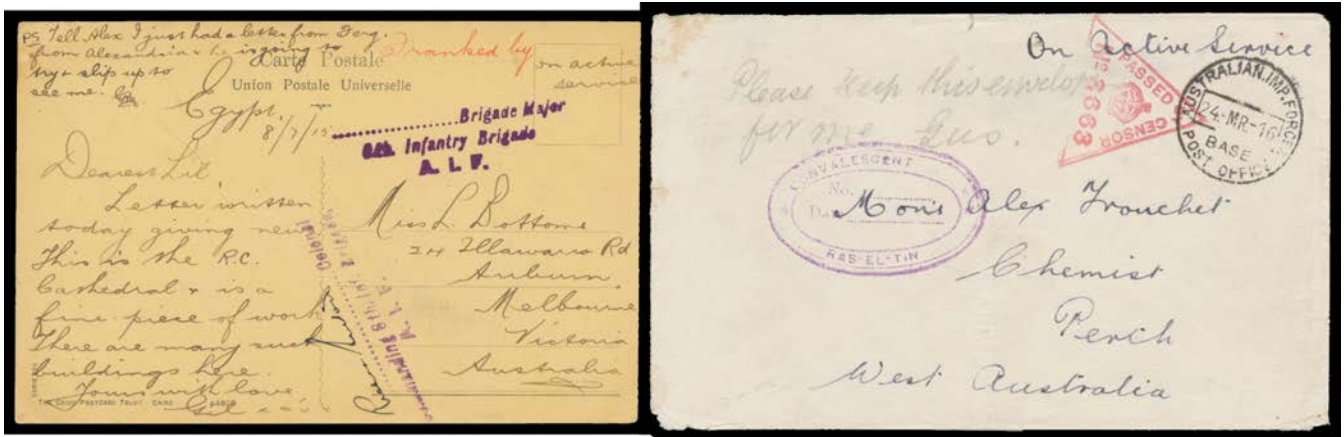 PS Tell Alex I just had a letter from Ferg.
from Alexandria & he is going to
try & slip up to
see me.
Carte Postale
Union Postale Universelle
Franked by
on active
service
Egypt,
8/7/15
Brigade Major
6th Infantry Brigade
A. I. F.
Dearest Lil
Letter written
today giving news
This is the R.C.
Cathedral & is a
fine piece of work
There are many such
buildings here.
Yours with love
THE CAIRO POSTCARD TRUST - CAIRO
Miss L. Bottoms
24 Illawarra Rd
Auburn,
Melbourne
Victoria
Australia
Colonel
Commanding 6th Infantry Brigade
A. I. F.
On Active Service
Please keep this envelope
for me Gus.
PASSED
CENSOR
No 2663
AUSTRALIAN.IMP.FORCE
24.MR.16
BASE
POST OFFICE
CONVALESCENT
No.
RAS-EL-TIN
Mons Alex Trouchet
Chemist
Perth
West Australia